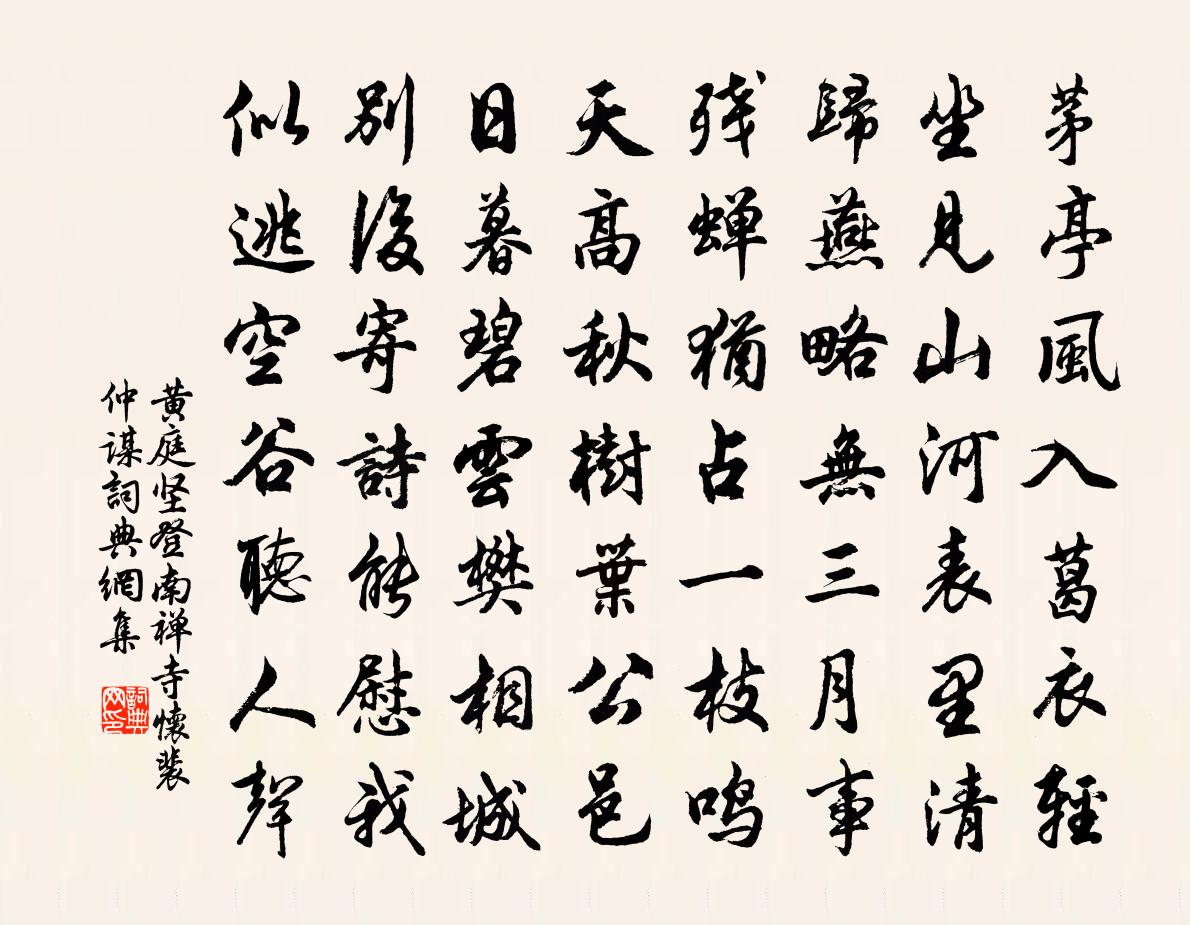 茅亭風入葛衣輕
坐見山河表里清
歸燕略無三月事
残蝉猶占一枝鸣
天高秋樹葉公邑
日暮碧雲樊相城
別後寄詩能慰我
似逃空谷聽人聲
黄庭坚登南禅寺懷裴
仲謀詞典網集
詞典
网印